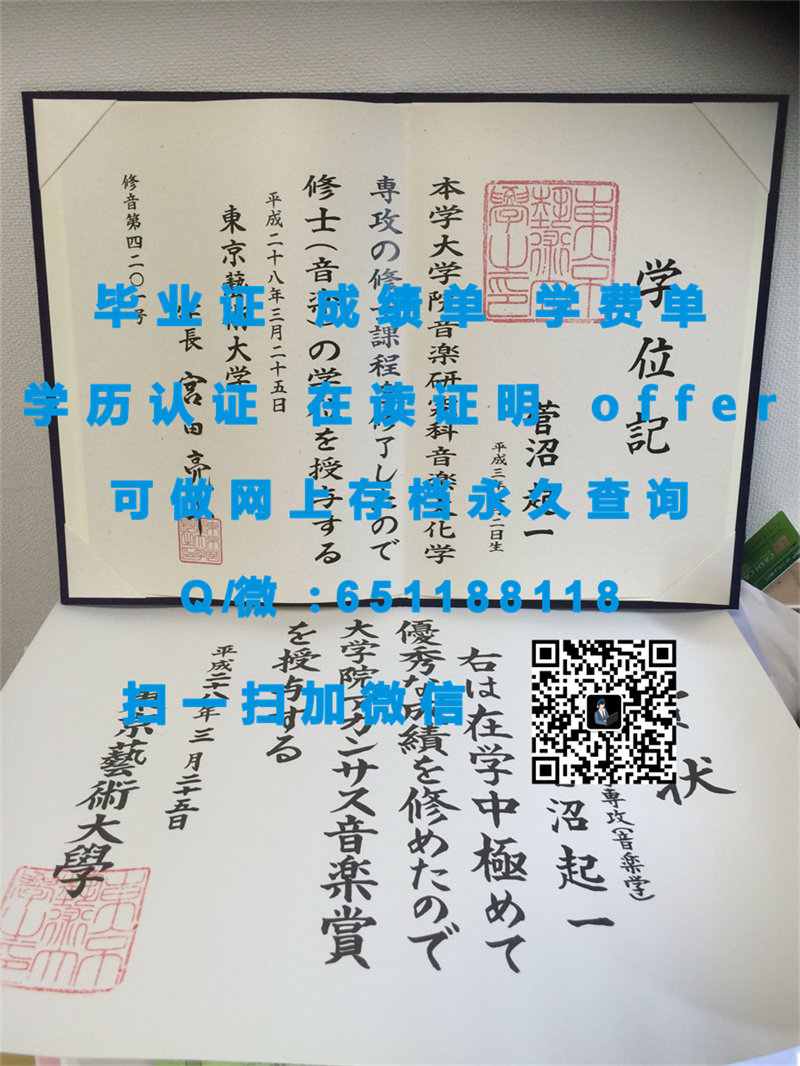 学位記
菅沼起一
本学大学院音楽研究科音楽文化学
専攻の修士課程を修了したので
修士(音楽)の学位を授与する
平成二十八年三月二十五日
東京藝術大学
学長 宮田亮平
修音第四二〇一号
毕业证 成绩单 学费单
学历认证 在读证明 offer
可做网上存档永久查询
Q/微:651188118
扫一扫加微信
状
専攻(音楽学)
沼起一
右は在学中極めて
優秀な成績を修めたので
大学院アカンサス音楽賞
を授与する
平成二十八年三月二十五日
東京藝術大學